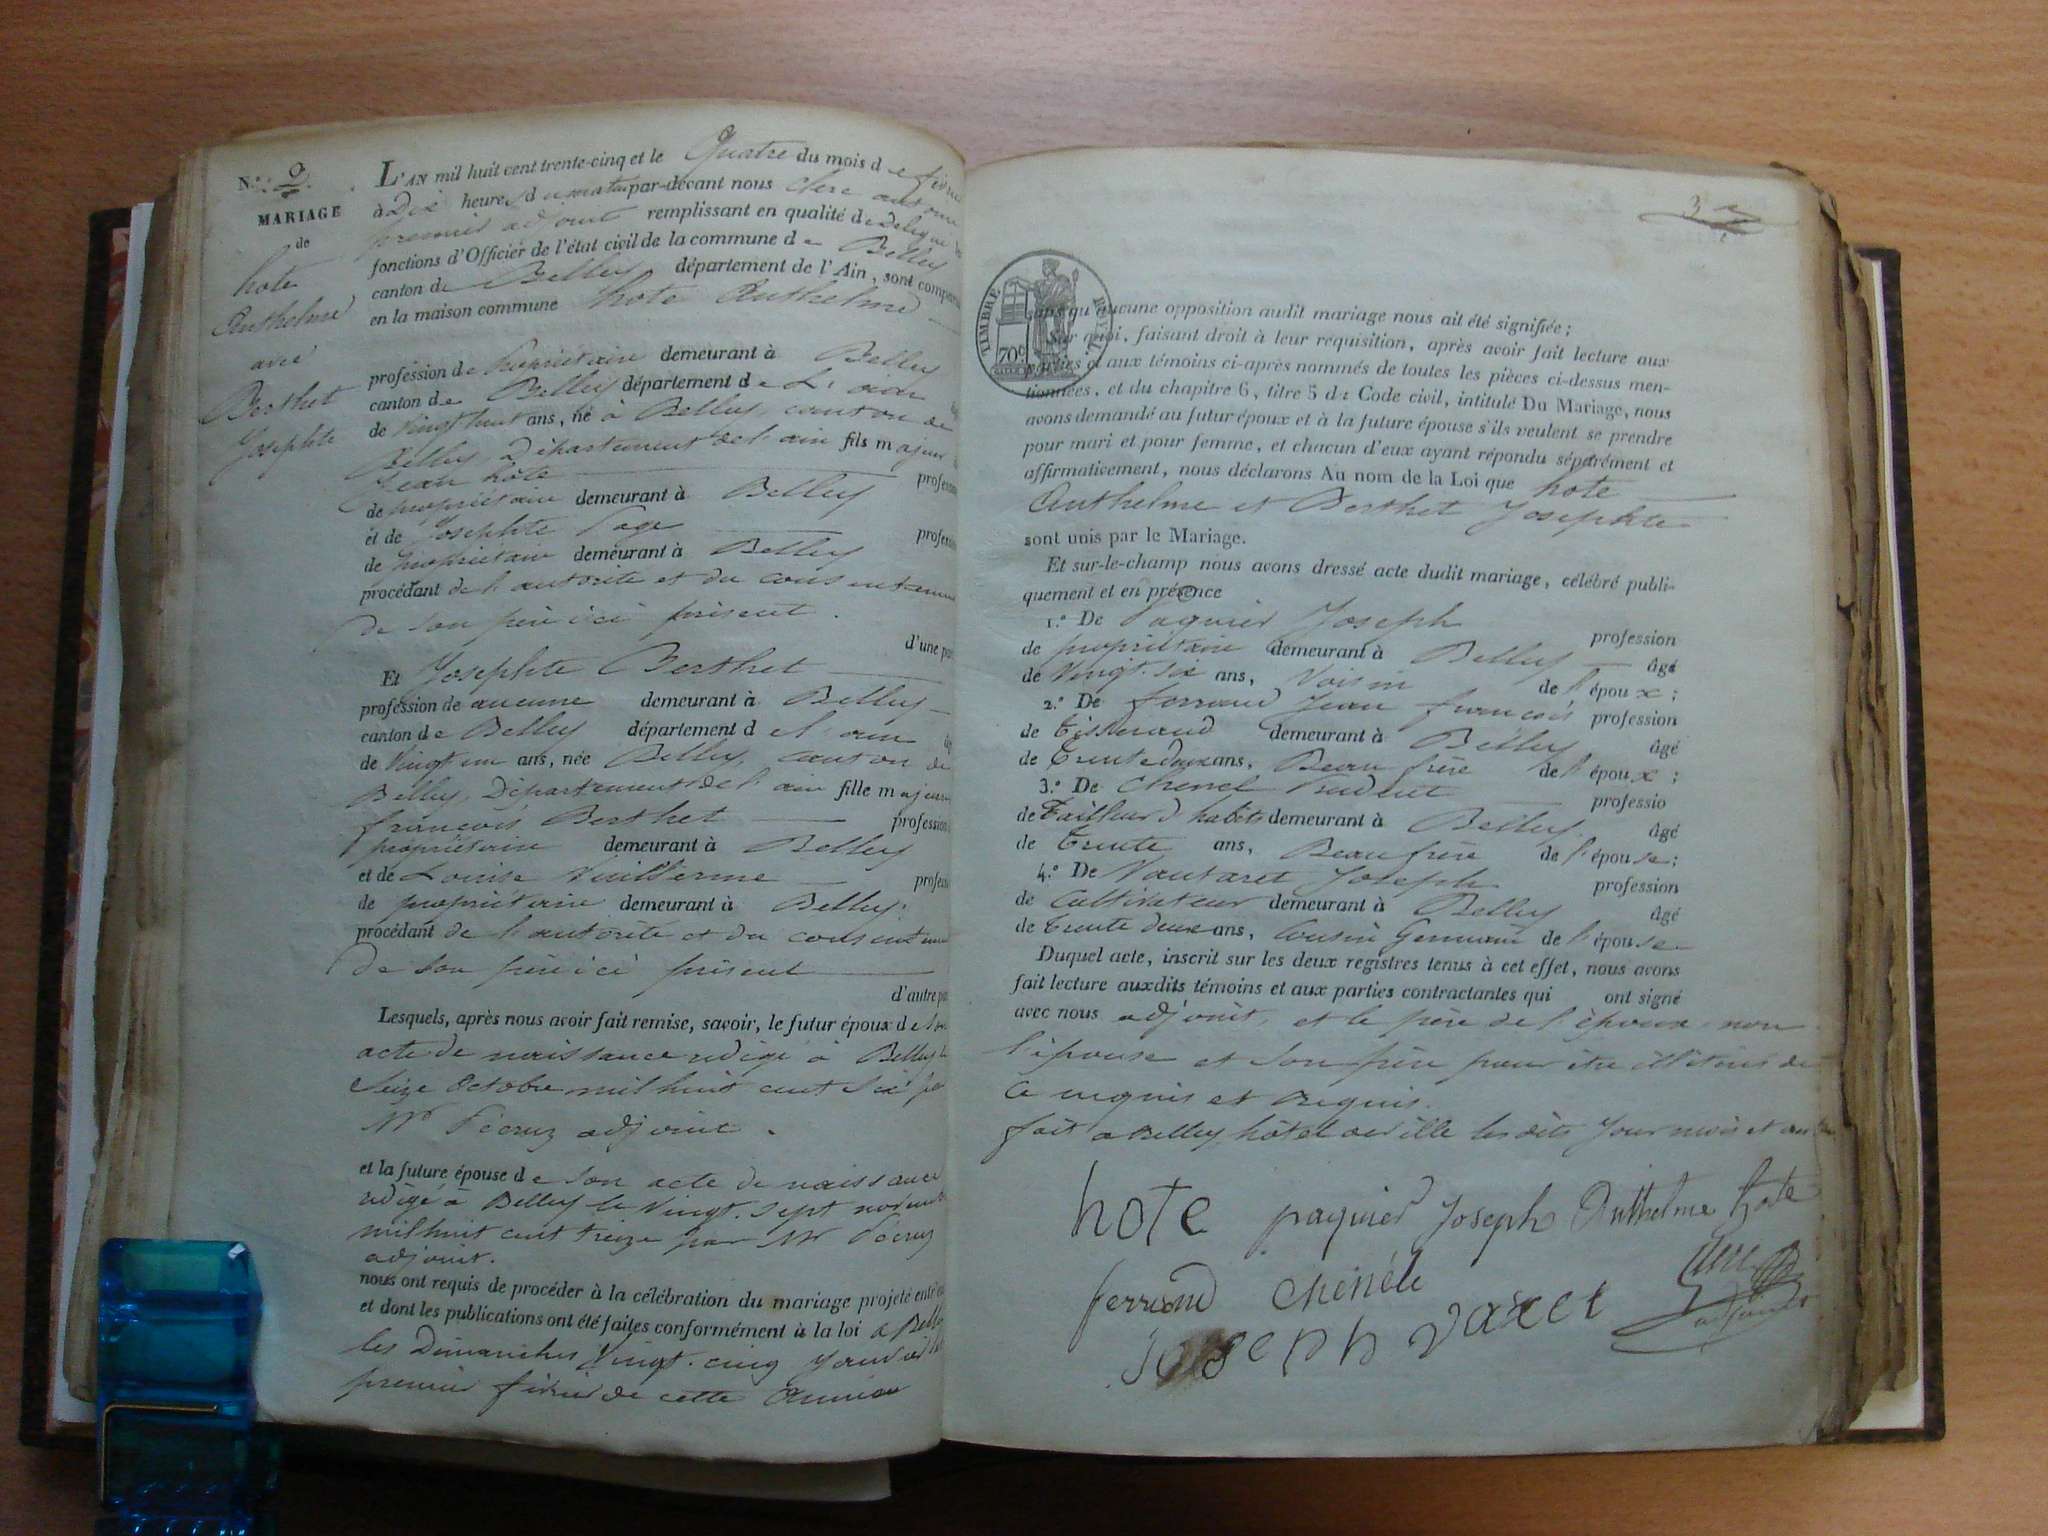 N.º 9
MARIAGE
de
hote
Anthelme
avec
Berthet
Josephte
L'AN mil huit cent trente-cinq et le Quatre du mois de févrie
à Dix heures du matin par-devant nous Clerc antoine
premier adjoint remplissant en qualité de délégué les
fonctions d'Officier de l'état civil de la commune de Belley
canton de Belley département de l'Ain, sont comparu
en la maison commune hote Anthelme
profession de propriétaire demeurant à Belley
canton de Belley département de L'ain âgé
de Vingt huit ans, né à Belley, canton de
Belley, Département de l'ain fils majeur de
Jean hôte profession
de propriétaire demeurant à Belley
et de Josephte Page profession
de propriétaire demeurant à Belley
procédant de l'autorité et du consentement
de son père ici présent.
d'une part
Et Josephte Berthet
profession de aucune demeurant à Belley
canton de Belley département de l'ain âgé
de Vingt un ans, née Belley, canton de
Belley, Département de l'ain fille majeure
françois Berthet profession
propriétaire demeurant à Belley
et de Louise Vuillerme profession
de propriétaire demeurant à Belley.
procédant de l'autorité et du consentement
de son père ici présent
d'autre part
Lesquels, après nous avoir fait remise, savoir, le futur époux de son
acte de naissance rédigé à Belley le
Seize Octobre mil huit cent six par
Mr Pécruz adjoint.
et la future épouse de son acte de naissance
rédigé à Belley le Vingt-sept novembre
mil huit cent treize par Mr Pécruz
adjoint.
nous ont requis de procéder à la célébration du mariage projeté entr'eux
et dont les publications ont été faites conformément à la loi à Belley
les Dimanches Vingt-cinq Janvier et
premier février de cette Année
3
TIMBRE ROYAL
70c
sans qu'aucune opposition audit mariage nous ait été signifiée;
Sur quoi, faisant droit à leur requisition, après avoir fait lecture aux
parties et aux témoins ci-après nommés de toutes les pièces ci-dessus men-
tionnées, et du chapitre 6, titre 5 du Code civil, intitulé Du Mariage, nous
avons demandé au futur époux et à la future épouse s'ils veulent se prendre
pour mari et pour femme, et chacun d'eux ayant répondu séparément et
affirmativement, nous déclarons Au nom de la Loi que hote
Anthelme et Berthet Josephte
sont unis par le Mariage.
Et sur-le-champ nous avons dressé acte dudit mariage, célébré publi-
quement et en présence
1.º De Paquier Joseph profession
de propriétaire demeurant à Belley âgé
de Vingt-six ans, Voisin de l'époux;
2.º De ferrand Jean françois profession
de Tisserand demeurant à Belley âgé
de Trente deux ans, Beau frère de l'époux;
3.º De Chenel Prudent professio
de Tailleur d'habits demeurant à Belley. âgé
de Trente ans, Beau frère de l'épouse;
4.º De Vautaret Joseph profession
de Cultivateur demeurant à Belley âgé
de Trente deux ans, Cousin Germain de l'épouse
Duquel acte, inscrit sur les deux registres tenus à cet effet, nous avons
fait lecture auxdits témoins et aux parties contractantes qui ont signé
avec nous adjoint, et le père de l'époux, non
l'épouse et son père pour être illétérés de
ce enquis et Requis.
fait à Belley hôtel de ville les dits Jour mois et an
hote paquier Joseph Anthelme hote
ferrand chenele Clerc
Joseph vaxet adjoint